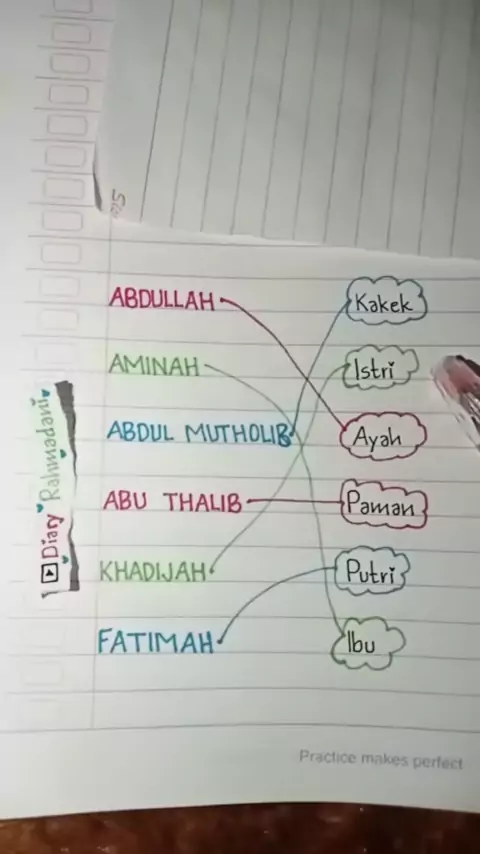 ABDULLAH
Kakek
AMINAH
Istri
ABDUL MUTHOLIB
Ayah
ABU THALIB
Paman
KHADIJAH
Putri
FATIMAH
Ibu
Diary Rahmadani
Practice makes perfect